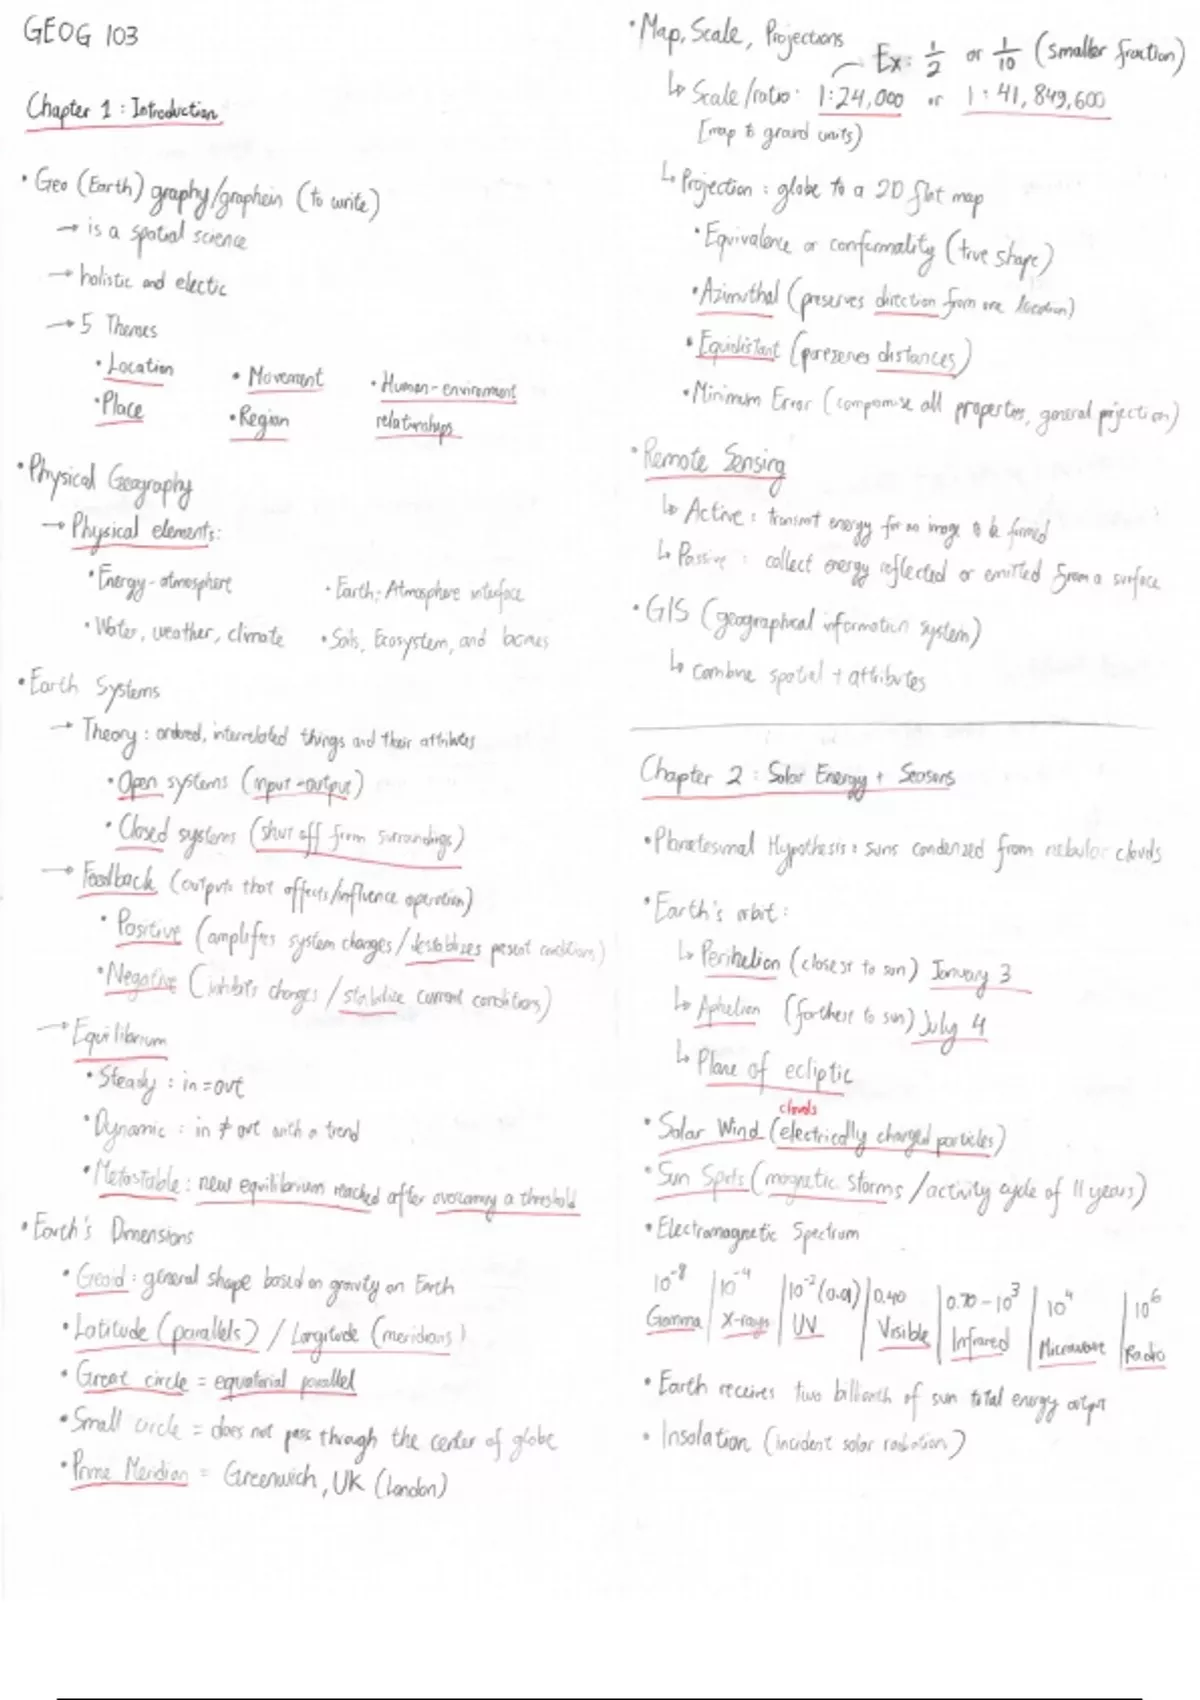 GEOG 103
Chapter 1 : Introduction
• Geo (Earth) graphy/graphein (to write)
→ is a spatial science
→ holistic and electic
→ 5 Themes
• Location • Movement • Human-enviroment
• Place • Region relationships
• Physical Geography
→ Physical elements:
• Energy-atmosphere • Earth-Atmosphere interface
• Water, weather, climate • Soils, Ecosystem, and biomes
• Earth Systems
→ Theory : ordered, interrelated things and their attributes
• Open systems (input-output)
• Closed systems (shut off from surroundings)
→ Feedback (outputs that affects/influence operation)
• Positive (amplifies system changes/destabilizes present conditions)
• Negative (inhibits changes / stabilize current conditions)
→ Equilibrium
• Steady : in = out
• Dynamic : in ≠ out with a trend
• Metastable : new equilibrium reached after overcoming a threshold
• Earth's Dimensions
• Geoid : general shape based on gravity on Earth
• Latitude (parallels) / Longitude (meridians)
• Great circle = equatorial parallel
• Small circle = does not pass through the center of globe
• Prime Meridian = Greenwich, UK (London)
• Map, Scale, Projections
Ex: 1/2 or 1/10 (smaller fraction)
↳ Scale/ratio: 1:24,000 or 1 : 41,849,600
[map to ground units)
↳ Projection : globe to a 2D flat map
• Equivalence or conformality (true shape)
• Azimuthal (preserves direction from one location)
• Equidistant (perezerves distances)
• Minimum Error (compromise all properties, general projection)
• Remote Sensing
↳ Active : transmit energy for an image to be formed
↳ Passive : collect energy reflected or emitted from a surface
• GIS (geographical information system)
↳ combine spatial + attributes
Chapter 2 : Solar Energy + Seasons
• Planetesimal Hypothesis : suns condenzed from nebular clouds
• Earth's orbit :
↳ Perihelion (closest to sun) January 3
↳ Aphelion (farthest to sun) July 4
↳ Plane of ecliptic
clouds
• Solar Wind (electrically charged particles)
• Sun Spots (magnetic storms / activity cycle of 11 years)
• Electromagnetic Spectrum
10⁻⁸ | 10⁻⁴ | 10⁻² (0.01) | 0.40 | 0.70 - 10³ | 10⁴ | 10⁶
Gamma | X-rays | UV | Visible | Infrared | Microwave | Radio
• Earth receives two billionth of sun total energy output
• Insolation (incident solar radiation)